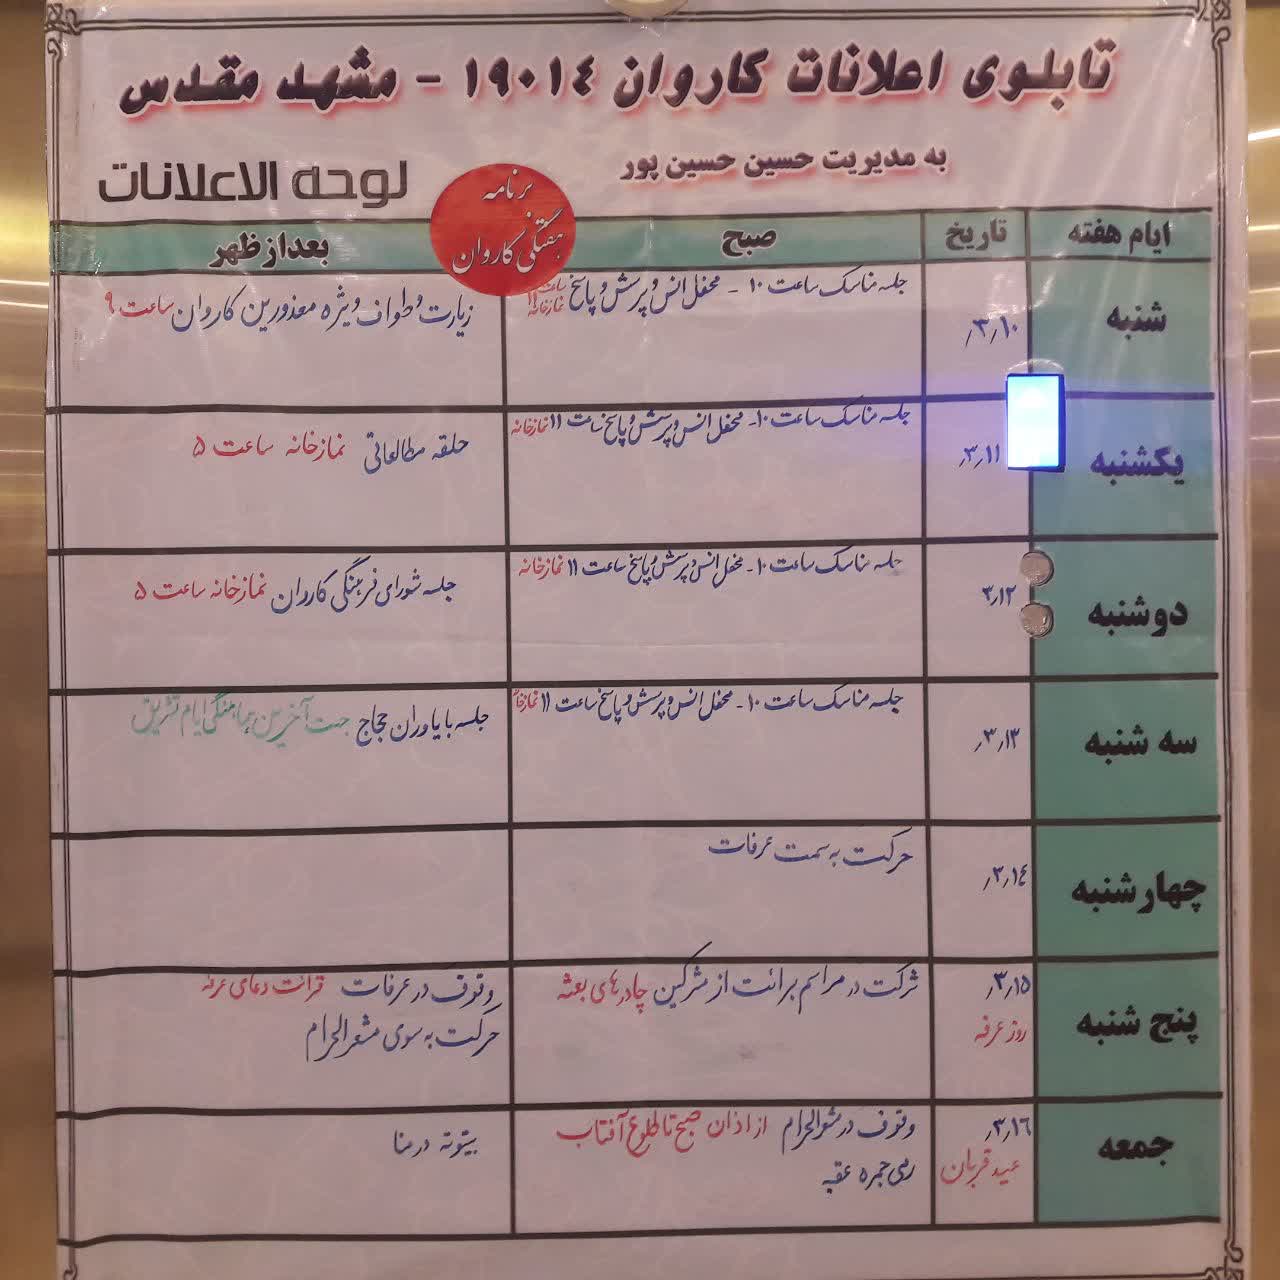 تابلوی اعلانات کاروان ۱۹۰۱٤ - مشهد مقدس
به مدیریت حسین حسین پور
لوحه الاعلانات
برنامه
هفتگی کاروان
ایام هفته تاریخ صبح بعداز ظهر
شنبه ۳٫۱۰٫ جلسه مناسک ساعت ۱۰ - محفل انس و پرسش و پاسخ ساعت ۱۱ نمازخانه زیارت و طواف ویژه معذورین کاروان ساعت ۹
یکشنبه ۳٫۱۱٫ جلسه مناسک ساعت ۱۰ - محفل انس و پرسش و پاسخ ساعت ۱۱ نمازخانه حلقه مطالعاتی نمازخانه ساعت ۵
دوشنبه ۳٫۱۲ جلسه مناسک ساعت ۱۰ - محفل انس و پرسش و پاسخ ساعت ۱۱ نمازخانه جلسه شورای فرهنگی کاروان نمازخانه ساعت ۵
سه شنبه ۳٫۱۳٫ جلسه مناسک ساعت ۱۰ - محفل انس و پرسش و پاسخ ساعت ۱۱ نمازخانه جلسه با یاوران حجاج جهت آخرین هماهنگی ایام تشریق
چهارشنبه ۳٫۱٤٫ حرکت به سمت عرفات
پنج شنبه ۳٫۱۵٫ شرکت در مراسم برائت از مشرکین چادرهای بعثه وقوف در عرفات قرائت دعای عرفه
روز عرفه حرکت به سوی مشعرالحرام
جمعه ۳٫۱۶٫ وقوف در مشعرالحرام از اذان صبح تا طلوع آفتاب بیتوته در منا
عید قربان رمی جمره عقبه